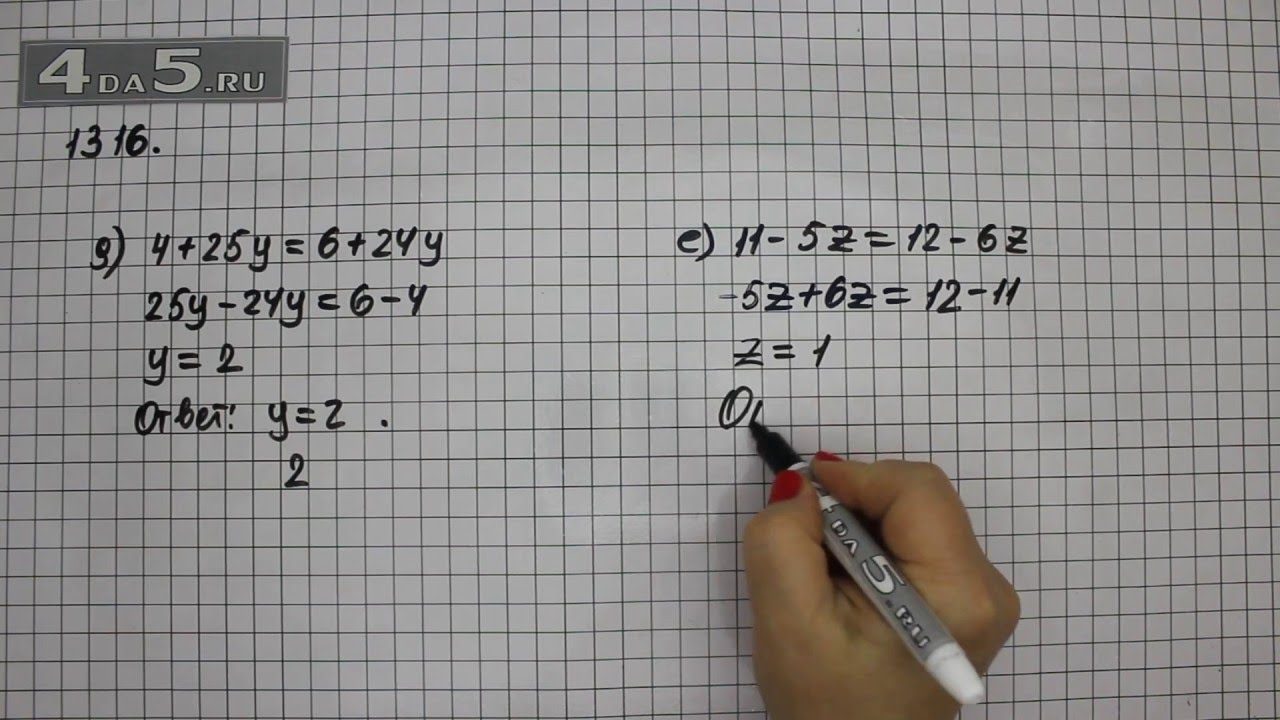 4DA5.RU
1316.
д) 4+25y=6+24y
25y-24y=6-4
y=2
Ответ: y=2.
2
е) 11-5z=12-6z
-5z+6z=12-11
z=1
От
4DA5.RU